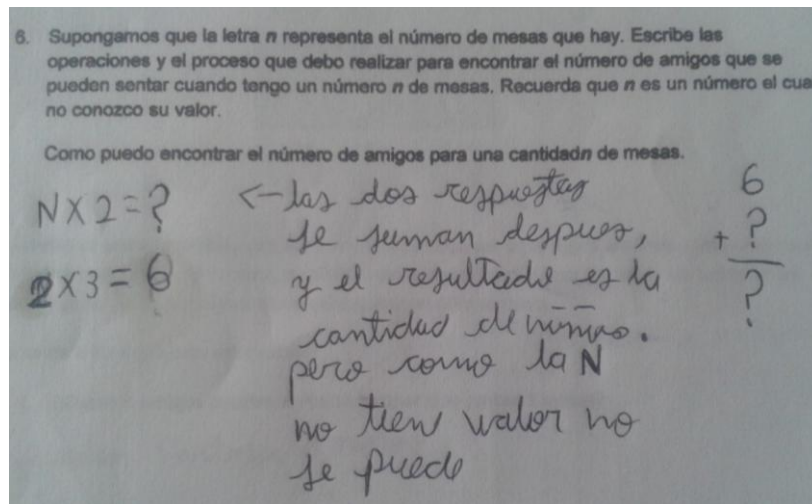 6. Supongamos que la letra n representa el número de mesas que hay. Escribe las
operaciones y el proceso que debo realizar para encontrar el número de amigos que se
pueden sentar cuando tengo un número n de mesas. Recuerda que n es un número el cua
no conozco su valor.
Como puedo encontrar el número de amigos para una cantidadn de mesas.
N X 2 = ?
2 X 3 = 6
<- las dos respuestas
se suman despues,
y el resultado es la
cantidad de
pero como la N
no tien valor no
se puede
6
+ ?
?